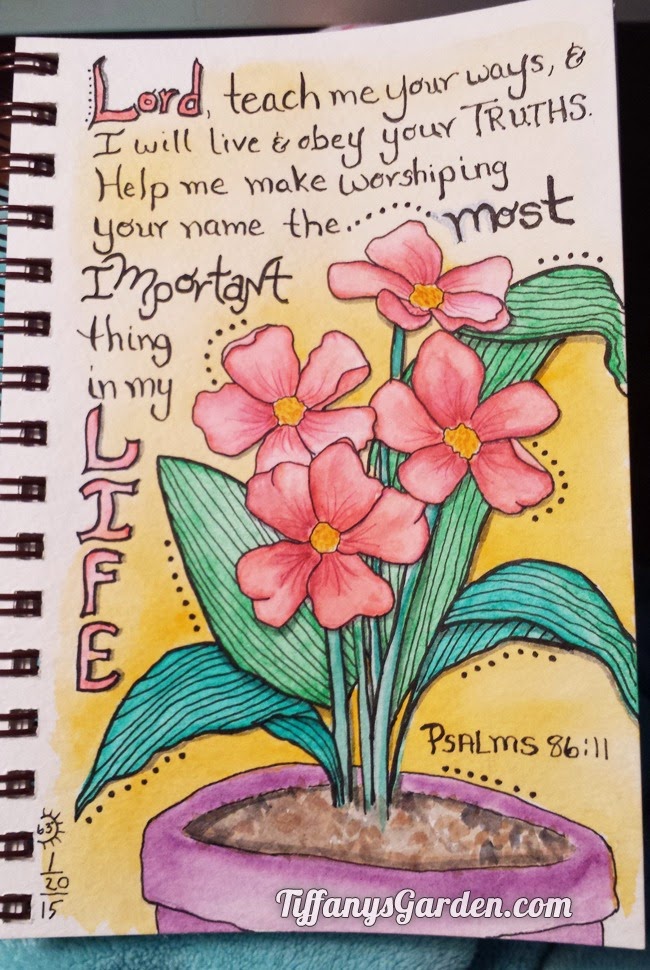 Lord, teach me your ways, &
I will live & obey your TRUTHS.
Help me make worshiping
your name the...... most
Important
thing
in my
LIFE
PSALMS 86:11
1
20
15
TiffanysGarden.com